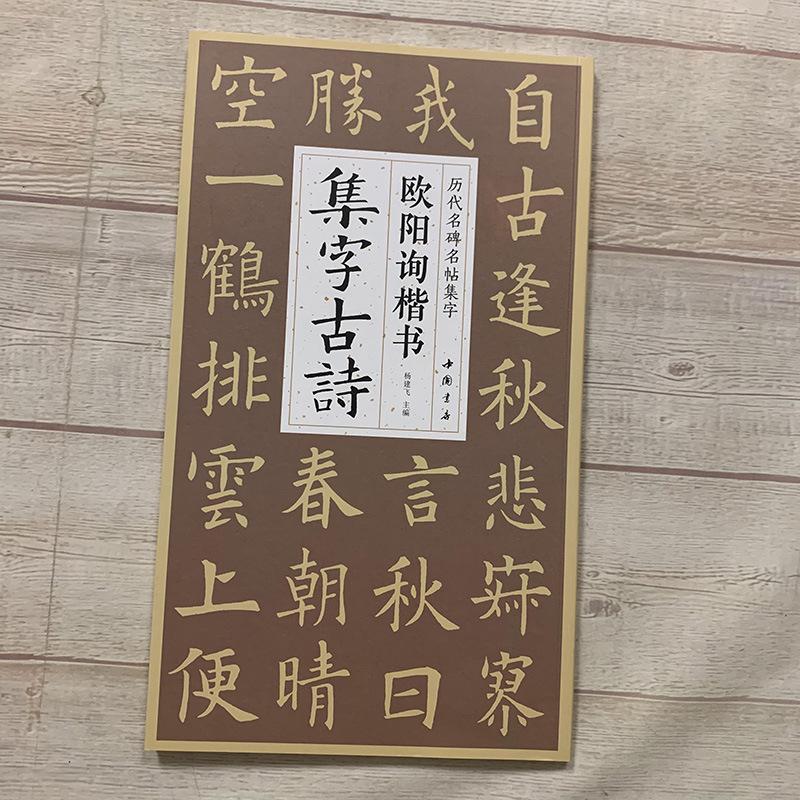 自古逢秋悲寂寥
我言秋日
勝春朝晴
空一鶴排雲上便
历代名碑名帖集字
中国书店
欧阳询楷书
杨建飞 主编
集字古詩